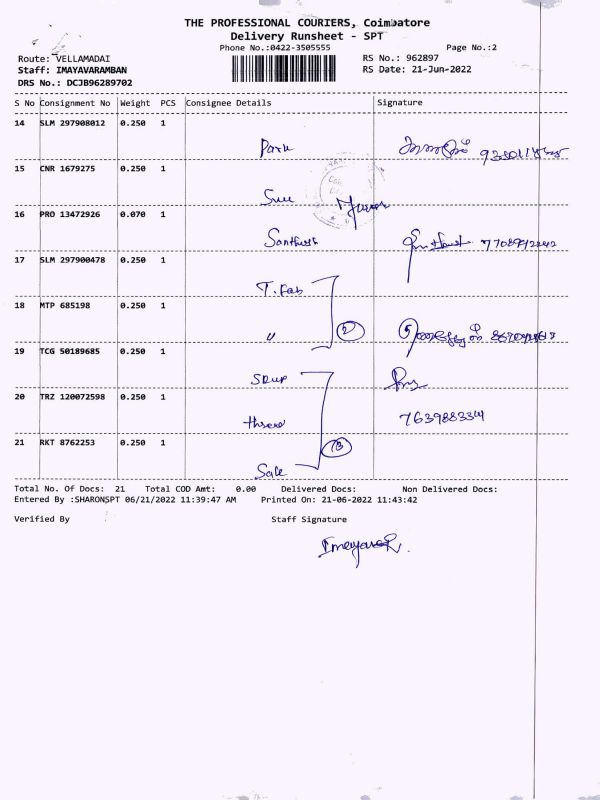 THE PROFESSIONAL COURIERS, Coimbatore
Delivery Runsheet - SPT
Phone No.:0422-3505555
Page No.:2
Route: VELLAMADAI
RS No.: 962897
Staff: IMAYAVARAMBAN
RS Date: 21-Jun-2022
DRS No.: DCJB96289702
S No Consignment No Weight PCS Consignee Details Signature
14 SLM 297908012 0.250 1
15 CNR 1679275 0.250 1
16 PRO 13472926 0.070 1
Santhosh
17 SLM 297900478 0.250 1
T. Fab
18 MTP 685198 0.250 1
" 2
19 TCG 50189685 0.250 1
20 TRZ 120072598 0.250 1
7639883314
21 RKT 8762253 0.250 1
Sale
Total No. Of Docs: 21 Total COD Amt: 0.00 Delivered Docs: Non Delivered Docs:
Entered By :SHARONSPT 06/21/2022 11:39:47 AM Printed On: 21-06-2022 11:43:42
Verified By Staff Signature